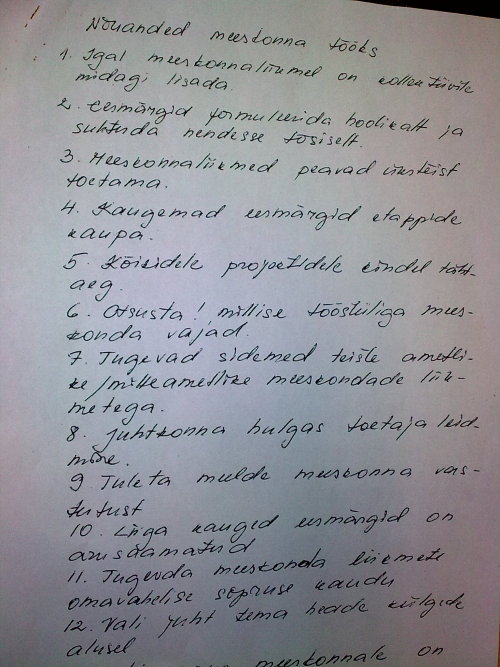 Nõuanded meeskonna tööks
1. Igal meeskonnaliikmel on kollektiivile
midagi lisada.
2. Eesmärgid formuleerida hoolikalt ja
suhtuda nendesse tõsiselt.
3. Meeskonnaliikmed peavad üksteist
toetama.
4. Kaugemad eesmärgid etappide
kaupa.
5. Kõikidele projektidele kindel täht-
aeg.
6. Otsusta! millise tööstiiliga mees-
konda vajad.
7. Tugevad sidemed teiste ametli-
ke/mitteametlike meeskondade liik-
metega.
8. Juhtkonna hulgas toetaja leid-
mine.
9 Tuleta meelde meeskonna vas-
tutust
10. Liiga kauged eesmärgid on
arusaamatud
11. Tugevda meeskonda liikmete
omavahelise sõpruse kaudu
12. Vali juht tema heade külgede
alusel
meeskonnale on